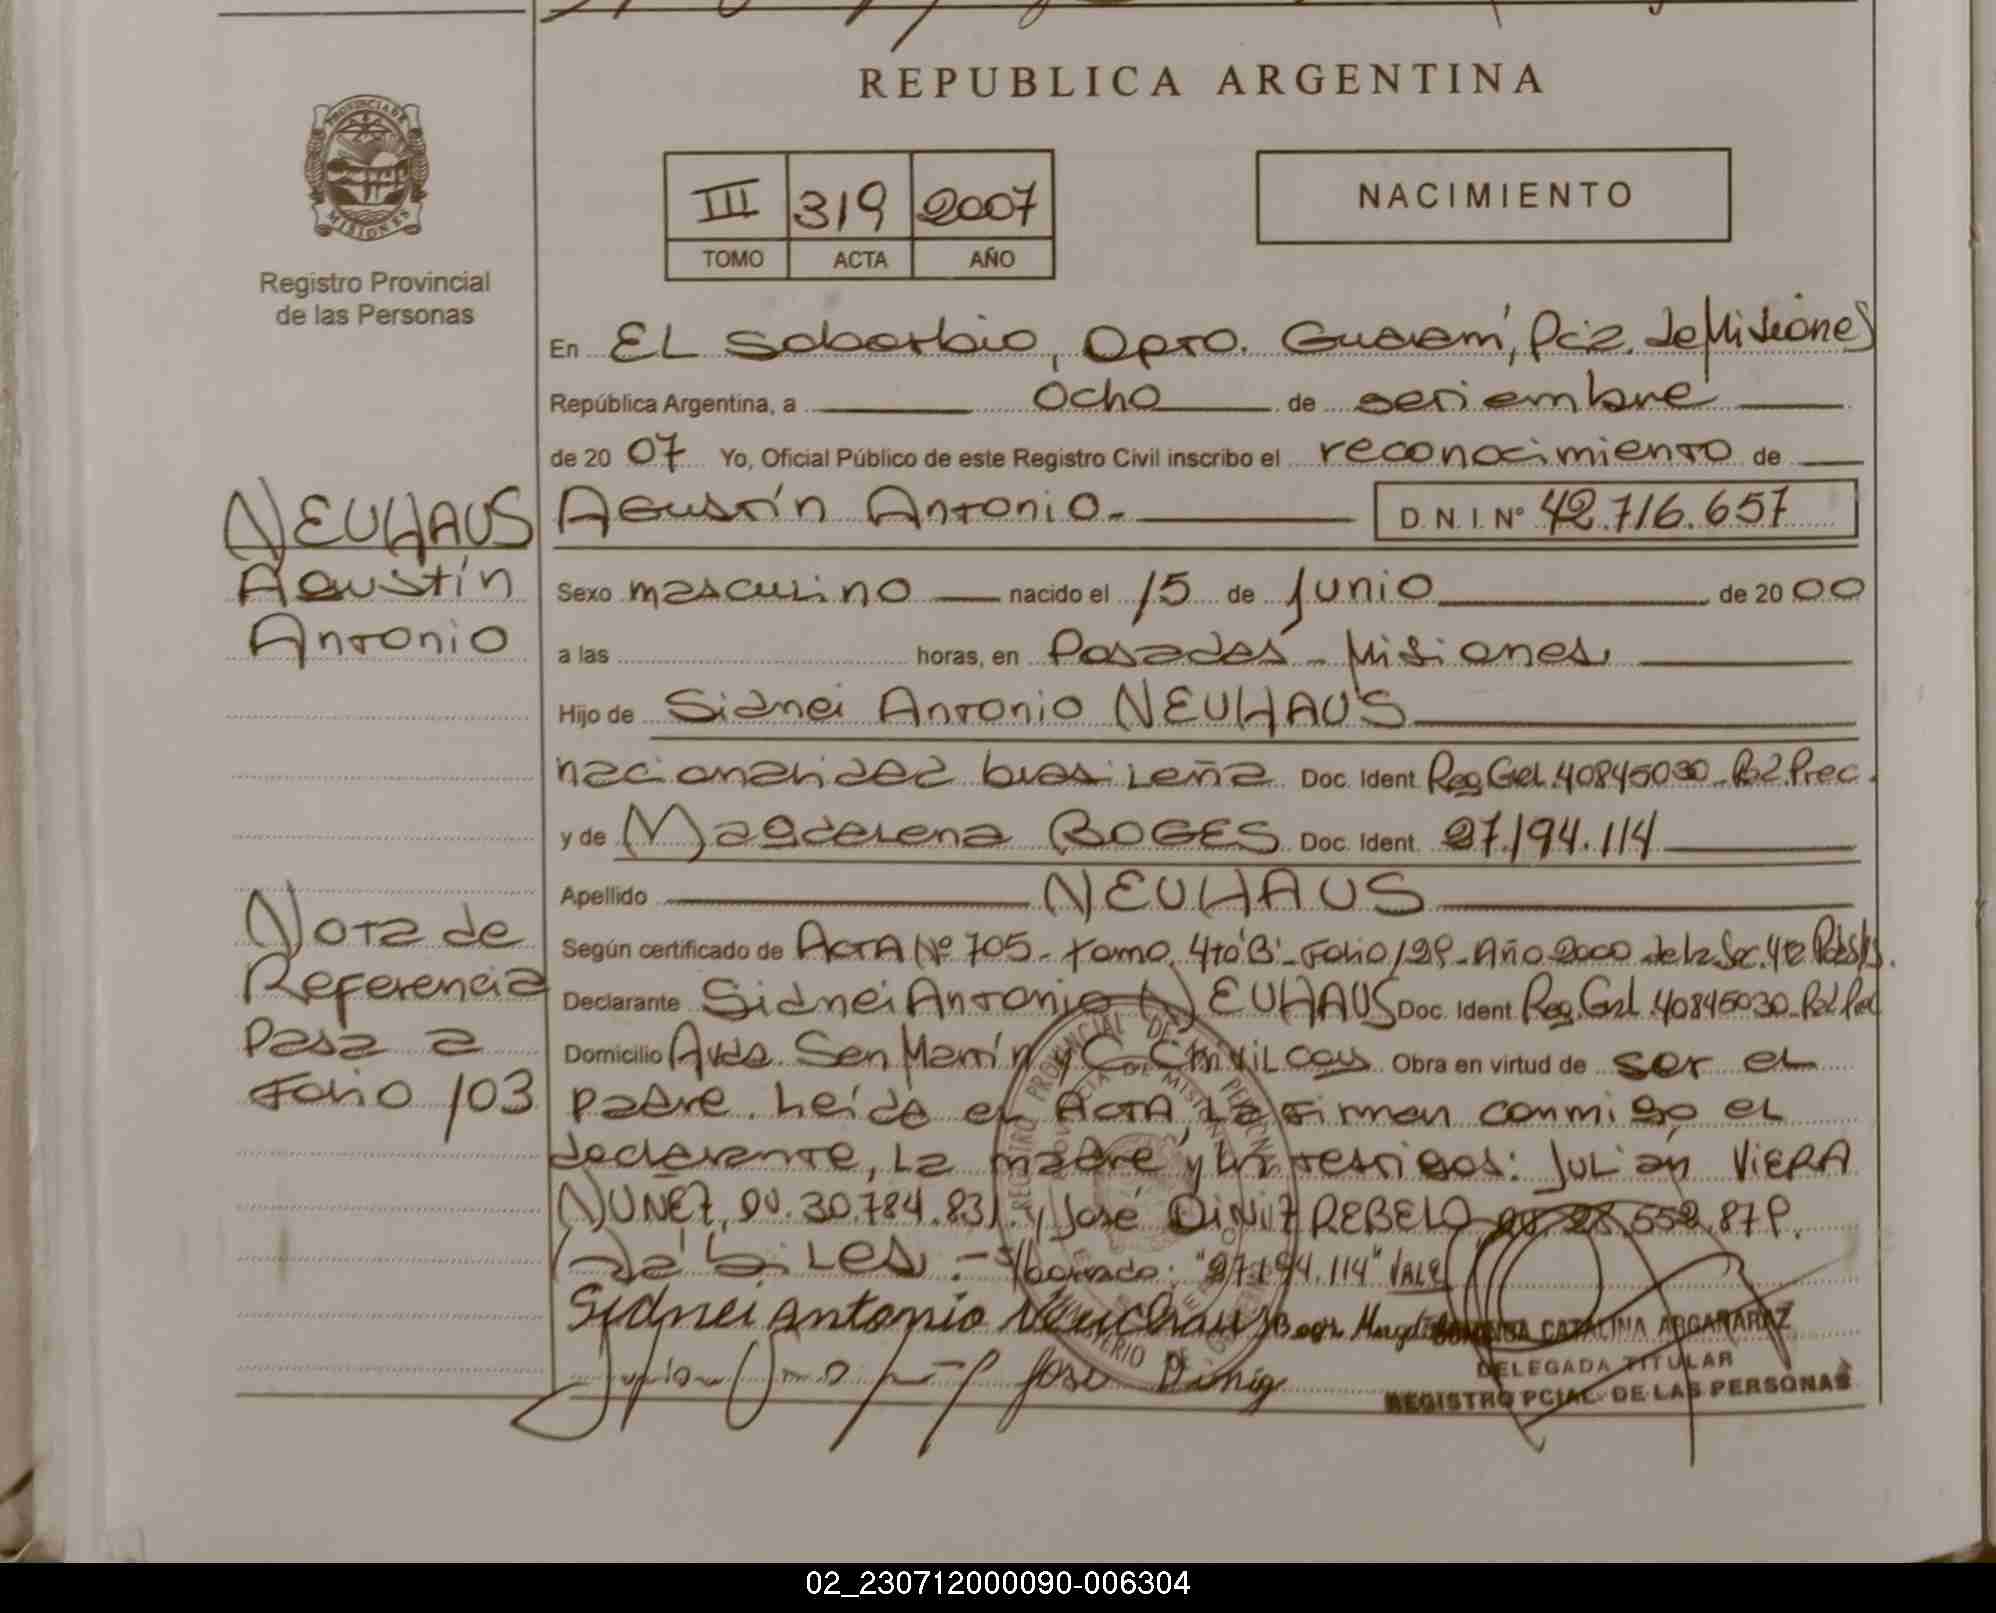 REPUBLICA ARGENTINA
PROVINCIA DE
MISIONES
Registro Provincial
de las Personas
III 319 2007
TOMO ACTA AÑO
NACIMIENTO
En EL Soberbio, Dpto. Guaraní, Pcia. de Misiones
República Argentina, a ocho de setiembre
de 2007 Yo, Oficial Público de este Registro Civil inscribo el reconocimiento de
Agustín Antonio.- D.N.I. Nº 42.716.657
NEUHAUS
Agustín
Antonio
Sexo masculino nacido el 15 de Junio de 2000
a las horas, en Posadas - Misiones.
Hijo de Sidnei Antonio NEUHAUS
nacionalidad brasileña Doc. Ident. Reg.Gel.40845030-
y de Magdalena BOGES Doc. Ident. 27.194.114
Apellido NEUHAUS
Según certificado de ACTA Nº 705- Tomo 4to"B"- Folio 129- Año 2000 de la Sec. 4ta
Declarante Sidnei Antonio NEUHAUS Doc. Ident. Reg.Gral.40845030-
Domicilio Avda. San Martín y C. Obra en virtud de ser el
padre. Leída el ACTA, la firman conmigo el
declarante, la madre y los testigos: Julián VIERA
NUÑEZ, DU. 30.784.831. y José DINIZ REBELO DU 28.552.879.
hábiles.- "27.194.114" VALE
Nota de
Referencia
Pasa a
Folio 103
Sidnei antonio Neuchaus
José Diniz
CATALINA ARGAÑARAZ
DELEGADA TITULAR
REGISTRO PCIAL. DE LAS PERSONAS
02_230712000090-006304